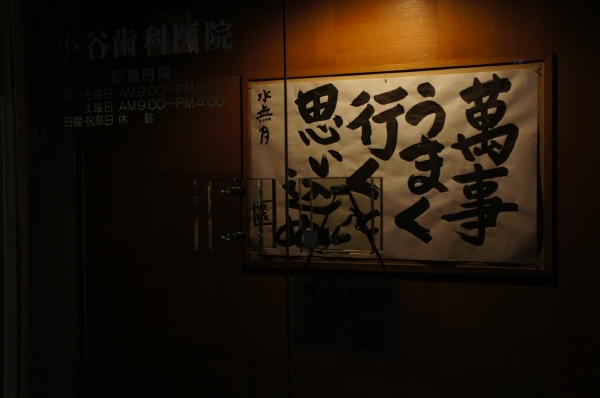 小谷歯科医院
診療時間
月〜金曜日 AM9:00〜PM6:00
土曜日 AM9:00〜PM4:00
日曜・祝祭日 休 診
萬事
うまく
行くと
思い込め
水無月
本日休診